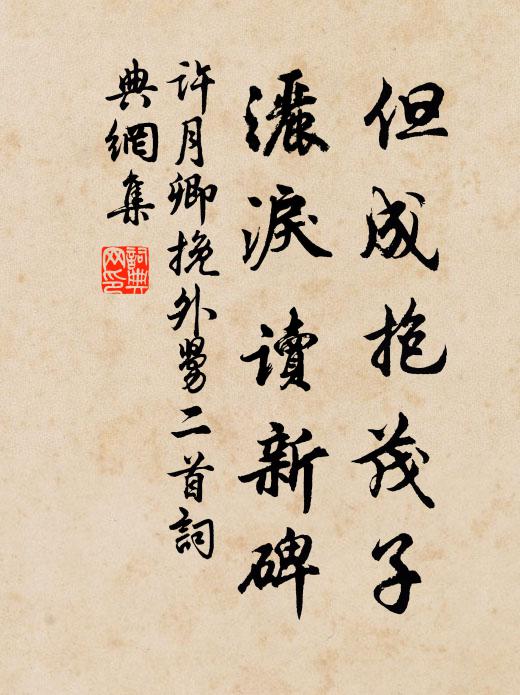 但成抱茂子
灑淚讀新碑
許月卿挽外舅二首詞
典網集
詞典
网印